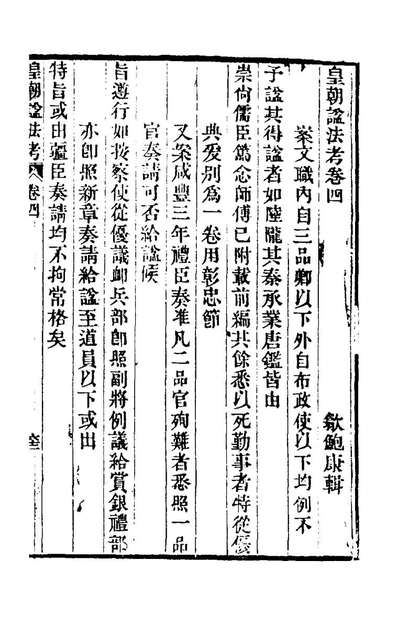 皇朝諡法考卷四
歙鮑康輯
案文職內自三品卿以下外自布政使以下均例不
予諡其得諡者如陸隴其秦承業唐鑑皆由
崇尙儒臣篤念師傅已附載前編其餘悉以死勤事者特從優
典爰別為一卷用彰忠節
又案咸豐三年禮臣奏准凡二品官殉難者悉照一品
官奏請可否給諡候
旨遵行如按察使從優議卹兵部卽照副將例議給賞銀禮部
亦卽照新章奏請給諡至道員以下或由
特旨或由疆臣奏請均不拘常格矣
皇朝諡法考 卷四